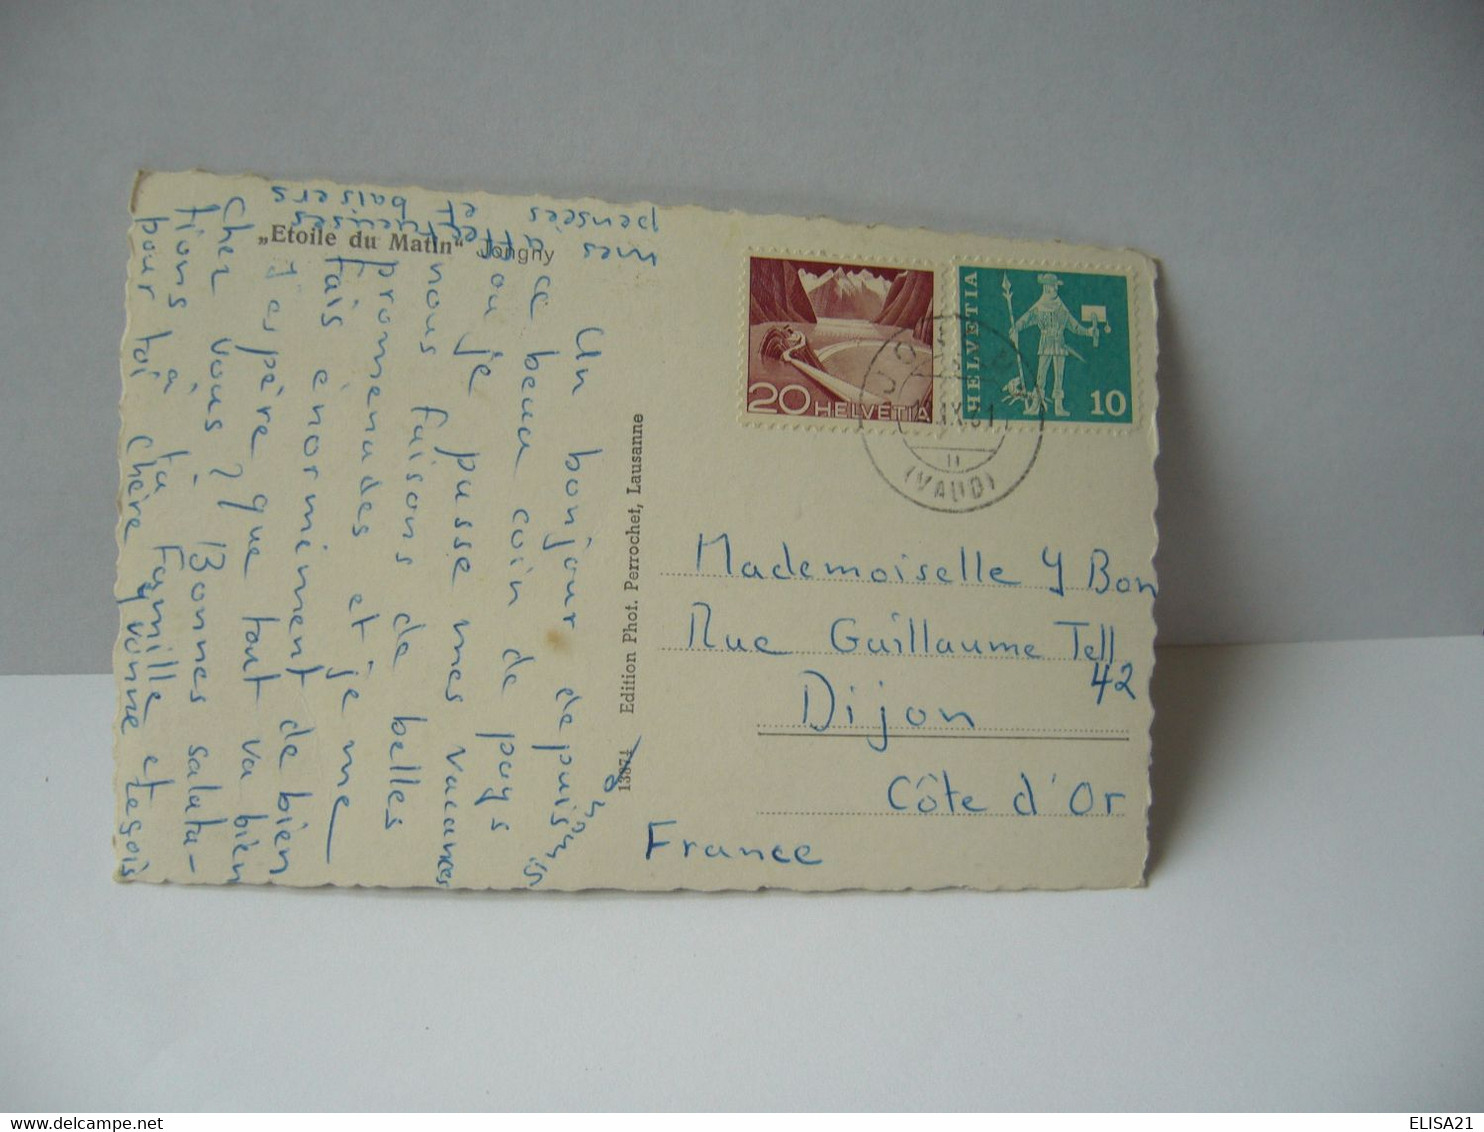 „Etoile du Matin“ Jongny
Un bonjour depuis
ce beau coin de pays
où je passe mes vacances
nous faisons de belles
promenades et je me
fais énormément de bien
J'espère que tout va bien
chez vous? Bonnes saluta-
tions à ta Famille et
pour toi chère Yvonne
mes
pensées
et
baisers
13874 Edition Phot. Perrochet, Lausanne
20 HELVETIA
HELVETIA 10
(VAUD)
Mademoiselle Y Bon
Rue Guillaume Tell
42
Dijon
Côte d'Or
France
ELISA21